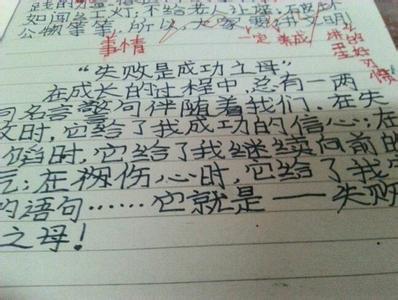 践的
如闯红灯,不给老人让座,
公物等等,所以,大家要讲文明
事情
一定 养成 讲卫生的好习惯
“失败是成功之母”
在成长的过程中,总有一两
句名言警句伴随着我们.在失
败时,它给了我成功的信心;在
陷时,它给了我继续向前的
气;在我伤心时,它给了我安
的语句……它就是——失败
之母!